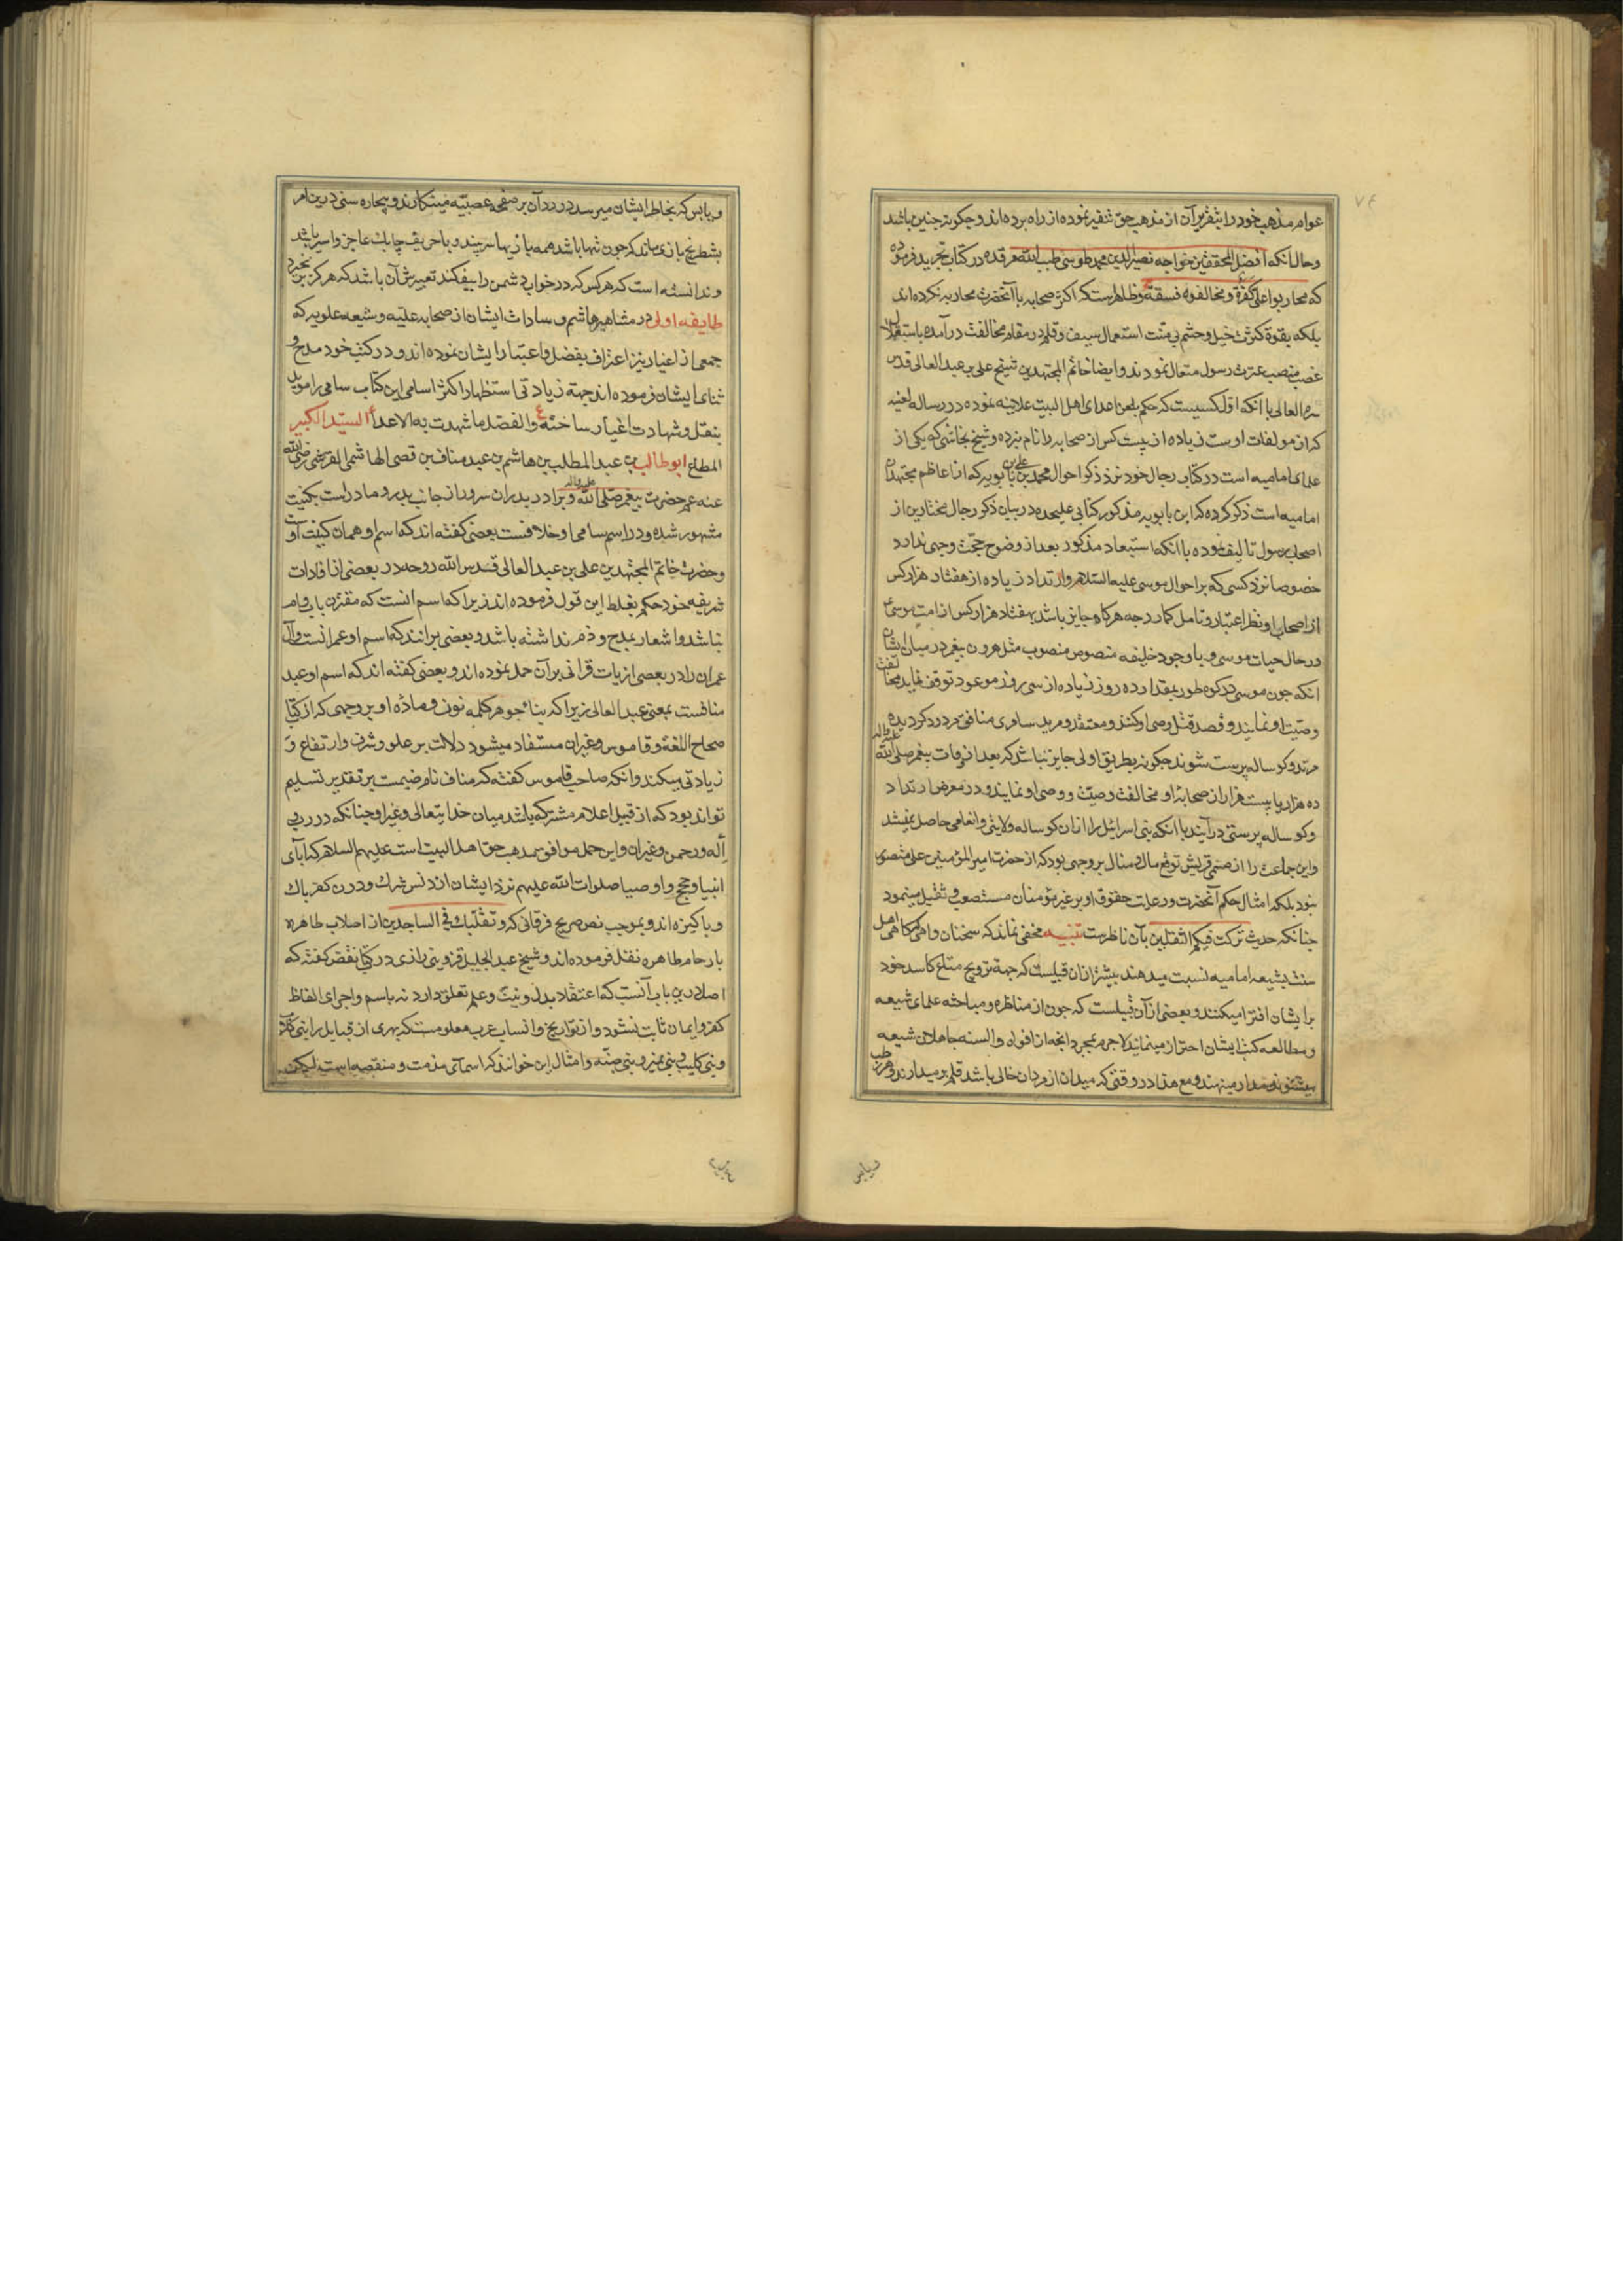 ۷۴
عوام مذهب خود را بتقریر آن از مذهب حق تنفیر نموده از راه برده‌اند و چکونه چنین باشد
و حال آنکه افضل المحققین خواجه نصیر الدین محمد طوسی طیب الله مرقده در کتاب تجرید فرموده
که محاربوا علی کفرة و مخالفوه فسقة و ظاهرست که اکثر صحابه با آنحضرت محاربه نکرده‌اند
بلکه بقوة کثرت خیل و حشم بی منت استعمال سیف و قلم در مقام مخالفت درآمده باستقلال
غصب منصب عترت رسول متعال نمودند و ایضا خاتم المجتهدین شیخ علی بن عبد العالی قدس
سره العالی با آنکه اول کسیست که حکم بلعن اعدای اهل البیت علانیه نموده در رساله لعنیه
که از مولفات اوست زیاده از بیست کس از صحابه را نام نبرده و شیخ نجاشی که یکی از
علمای امامیه است در کتاب رجال خود نزد ذکر احوال محمد بن علی بن بابویه که از اعاظم مجتهدان
امامیه است ذکر کرده که ابن بابویه مذکور کتابی علیحده در بیان ذکر رجال مختارین از
اصحاب رسول تالیف نموده با آنکه استبعاد مذکور بعد از وضوح حجت وجهی ندارد
خصوصا نزد کسی که بر احوال موسی علیه السلام و ارتداد زیاده از هفتاد هزار کس
از اصحاب او نظر اعتبار و تامل کمارد چه هرکاه جایز باشد هفتاد هزار کس از امت موسی
در حال حیات موسی و با وجود خلیفه منصوص منصوب مثل هرون پیغمبر در میان ایشان
آنکه چون موسی در کوه طور بمقدار ده روز زیاده از سی روز موعود توقف نماید مخالفت
وصیت او نمایند و قصد قتل وصی او کنند و معتقد و مرید سامری منافق مردود کردیده
مرتد و کوساله پرست شوند چکونه بطریق اولی جایز نباشد که بعد از وفات پیغمبر صلی الله علیه و آله
ده هزار یا بیست هزار از صحابه او مخالفت وصیت و وصی او نمایند و در معرض ارتداد
و کوساله پرستی درآیند با آنکه بنی اسرائیل را از آن کوساله ولایتی و انعامی حاصل نمیشد
و این جماعت را از صنمی قریش توقع مال و منال بر وجهی بود که از حضرت امیر المؤمنین علی متصور
نبود بلکه امثال حکم آنحضرت و رعایت حقوق او بر غیر مؤمنان مستصعب و ثقیل مینمود
چنانکه حدیث ترکت فیکم الثقلین بآن ناظرست تنبیه مخفی نماند که سخنان واهی که اهل
سنت بشیعه امامیه نسبت میدهند بیشتر از آن قبیلست که جهة ترویج متاع کاسد خود
بر ایشان افترا میکنند و بعضی از آن قبیلست که چون از مناظره و مباحثه علمای شیعه
و مطالعه کتب ایشان احتراز مینمایند لاجرم بمجرد آنچه از افواه و السنه جاهلان شیعه
میشنوند مدار مینهند و مع هذا در وقتی که میدان از مردان خالی باشد قلم برمیدارند و هر رطب
ویابس
و یابس که بخاطر ایشان میرسد در رد آن بر صفحه عصبیه مینکارند و بیچاره سنی درین امر
بشطرنج بازی ماند که چون تنها باشد همه بازیها ببیند و با حریف چابک عاجز و اسیر باشد
و ندانسته است که هرکس که در خواب دشمن را بیفکند تعبیرش آن باشد که هرکز
طایفه اولی در مشاهیر هاشم و سادات ایشان از صحابه علیه و شیعه علویه که
جمعی از اغیار نیز اعتراف بفضل و اعتبار ایشان نموده‌اند و در کتب خود مدح و
ثنای ایشان فرموده‌اند جهة زیادتی استظهار اکثر اسامی این کتاب سامی را موید
بنقل و شهادت اغیار ساخته ع والفضل ما شهدت به الاعداء السید الکبیر
المطاع ابو طالب بن عبد المطلب بن هاشم بن عبد مناف بن قصی الهاشمی القرشی رضی الله
عنه عم حضرت پیغمبر صلی الله علیه و آله و برادر پدر آن سرور از جانب پدر و مادرست بکنیت
مشهور شده و در اسم سامی او خلافست بعضی کفته‌اند که اسم او همان کنیت اوست
و حضرت خاتم المجتهدین علی بن عبد العالی قدس الله روحه در بعضی از افادات
شریفه خود حکم بغلط این قول فرموده‌اند زیرا که اسم آنست که مقترن باب و ام
نباشد و اشعار بمدح و ذم نداشته باشد و بعضی برآنند که اسم او عمرانست و آل
عمران را در بعضی از آیات قرآنی بر آن حمل نموده‌اند و بعضی کفته‌اند که اسم او عبد
منافست بمعنی عبد العالی زیرا که بناء جوهر کلمه نون و ماده او بر وجهی که از کتاب
صحاح اللغة و قاموس و غیر آن مستفاد میشود دلالت بر علو و شرف و ارتفاع و
زیادتی میکند و آنکه صاحب قاموس کفته که مناف نام صنمیست بر تقدیر تسلیم
تواند بود که از قبیل اعلام مشترکه باشد میان خدایتعالی و غیر او چنانکه در رب
و آله و رحمن و غیر آن و این حمل موافق مذهب حق اهل البیت است علیهم السلام که آبای
انبیا و حجج و اوصیا صلوات الله علیهم نزد ایشان از دنس شرک و درن کفر پاک
و پاکیزه‌اند و بموجب نص صریح فرقانی که و تقلبک فی الساجدین از اصلاب طاهره
بارحام طاهره نقل فرموده‌اند و شیخ عبد الجلیل قزوینی رازی در کتاب نقض کفته که
اصل درین باب آنست که اعتقاد بدل و نیت و علم تعلق دارد نه باسم و اجرای الفاظ
کفر و ایمان ثابت نشود و از تواریخ و انساب عرب معلومست که بهری از قبایل را بنی کلاب
و بنی کلیب و بنی نمیر و بنی ضبه و امثال این خوانند که اسمای مذمت و منقصه است لیکن